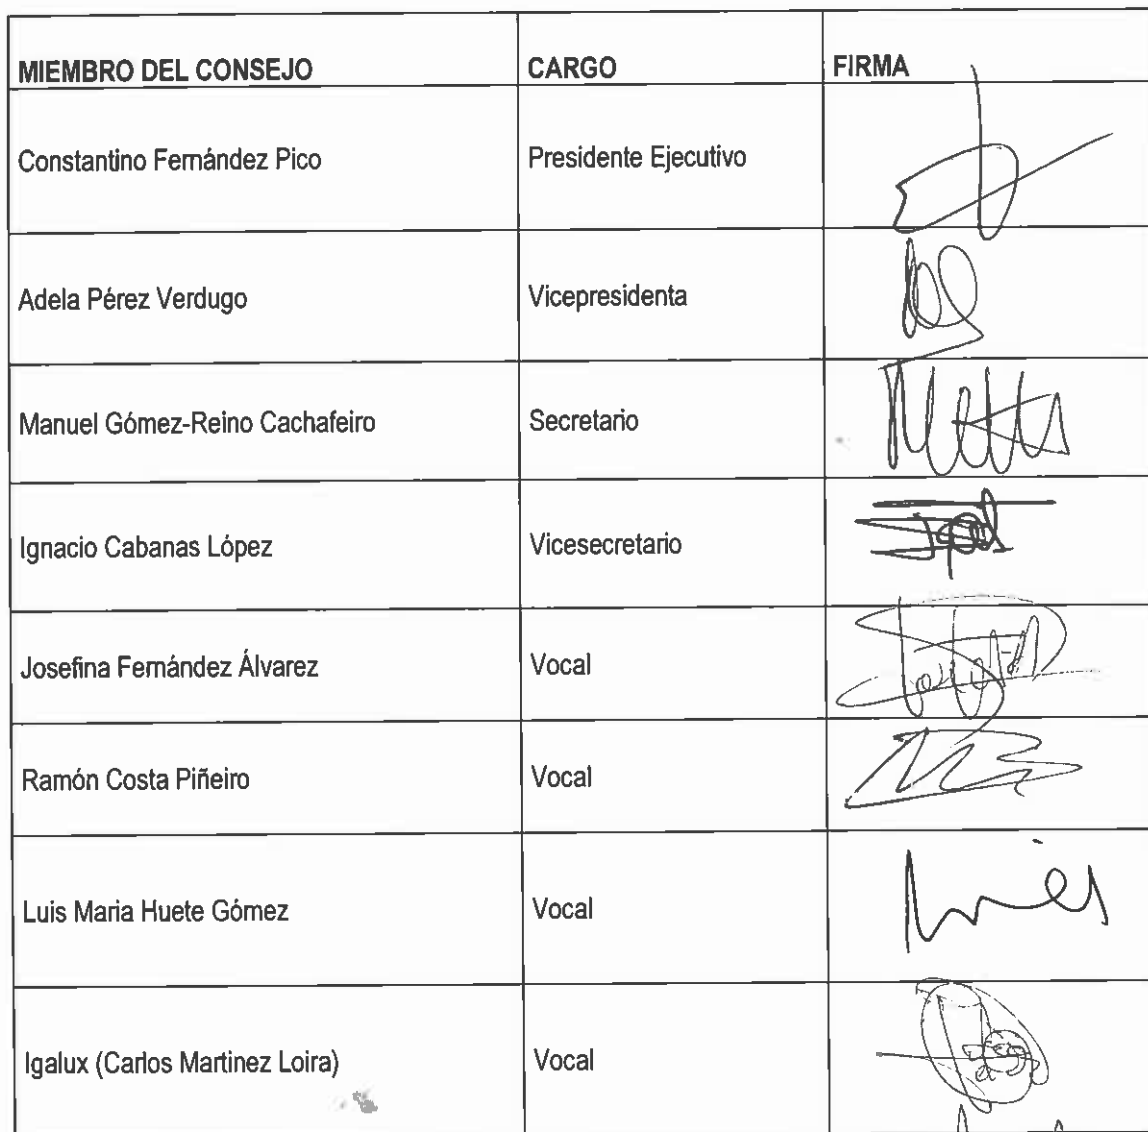 MIEMBRO DEL CONSEJO CARGO FIRMA
Constantino Fernández Pico Presidente Ejecutivo
Adela Pérez Verdugo Vicepresidenta
Manuel Gómez-Reino Cachafeiro Secretario
Ignacio Cabanas López Vicesecretario
Josefina Fernández Álvarez Vocal
Ramón Costa Piñeiro Vocal
Luis Maria Huete Gómez Vocal
Igalux (Carlos Martinez Loira) Vocal